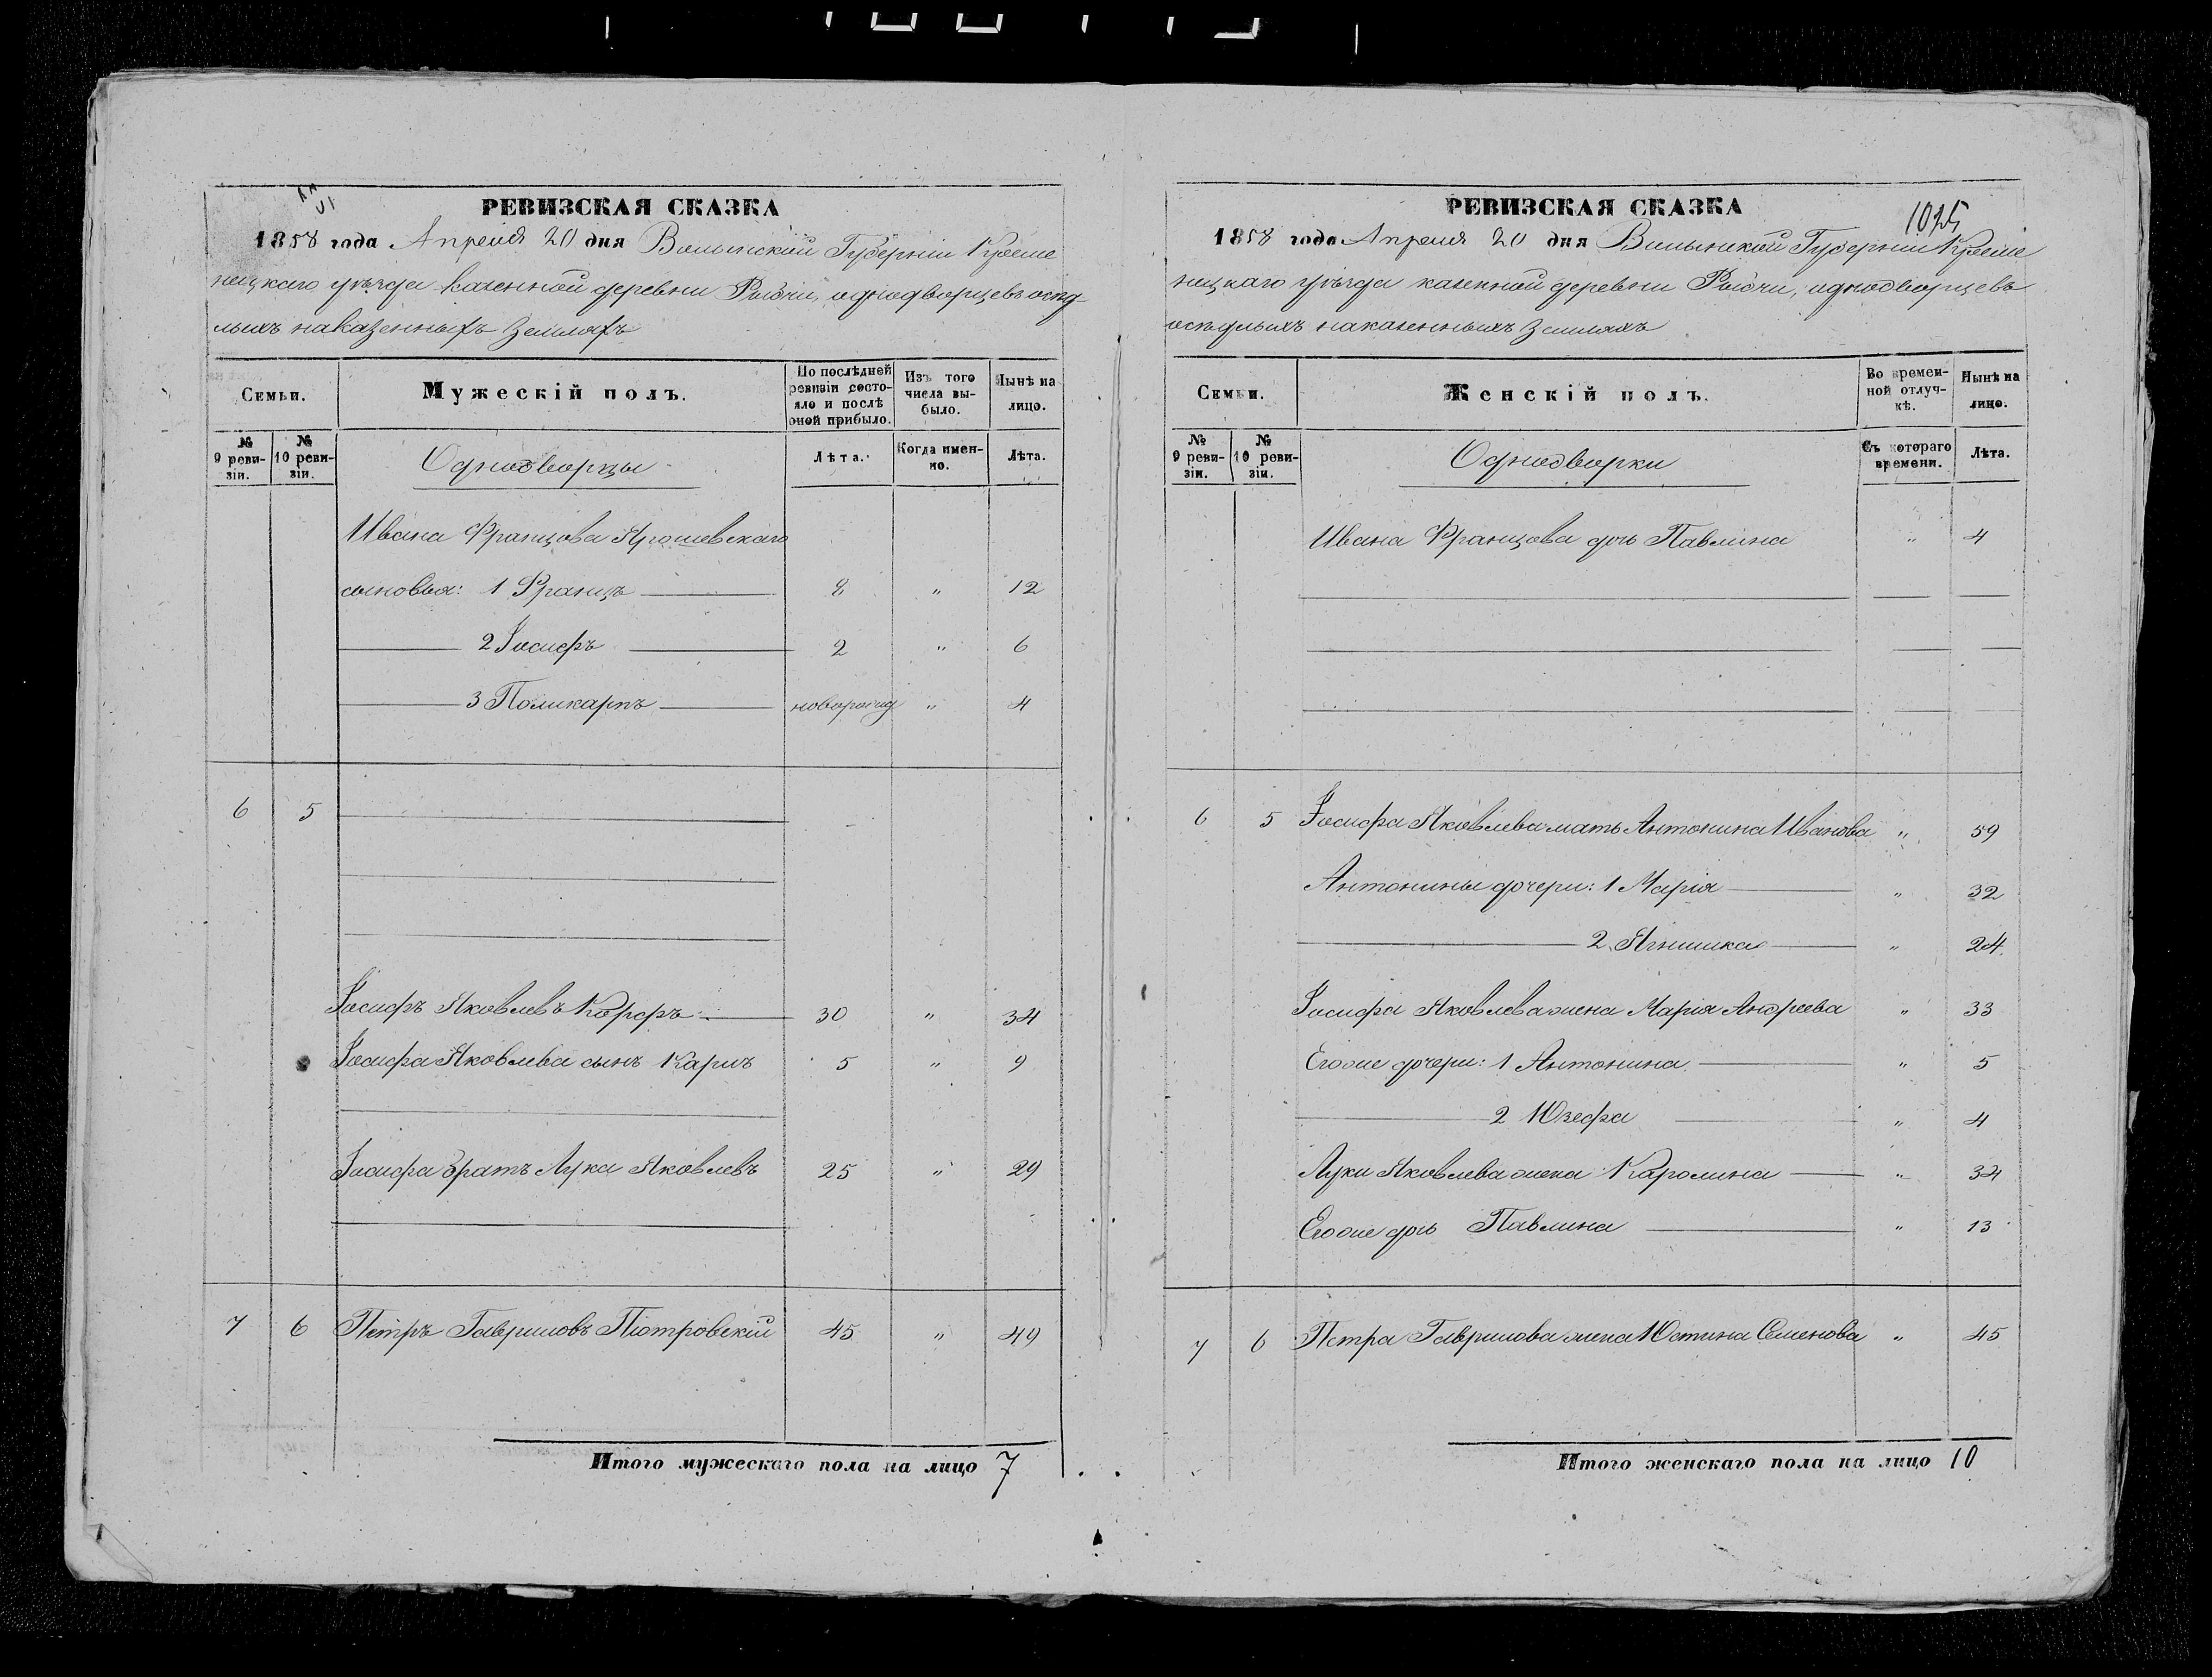 РЕВИЗСКАЯ СКАЗКА
1858 года Апреля 20 дня Волынской Губерніи Креме
нецкаго уѣзда казенной деревни Рыдчи, однодворцевъ осѣд
лыхъ на казенныхъ земляхъ
Семьи.
Мужескій полъ.
По послѣдней ревизіи состояло и послѣ оной прибыло.
Изъ того числа выбыло.
Нынѣ на лицо.
№ 9 ревизіи.
№ 10 ревизіи.
Однодворцы
Лѣта.
Когда именно.
Лѣта.
Ивана Францова Ярошевскаго
сыновья: 1 Францъ 8 " 12
2 Іосифъ 2 " 6
3 Поликарпъ новорожд " 4
6 5
Іосифъ Яковлевъ Корфъ 30 " 34
Іосифа Яковлева сынъ Карлъ 5 " 9
Іосифа братъ Лука Яковлевъ 25 " 29
7 6 Петръ Гавриловъ Піотровскій 45 " 49
Итого мужескаго пола на лицо 7
РЕВИЗСКАЯ СКАЗКА
1025
1858 года Апреля 20 дня Волынской Губерніи Креме
нецкаго уѣзда казенной деревни Рыдчи, однодворцевъ
осѣдлыхъ на казенныхъ земляхъ
Семьи.
Женскій полъ.
Во временной отлучкѣ.
Нынѣ на лицо.
№ 9 ревизіи.
№ 10 ревизіи.
Однодворки
Съ котораго времени.
Лѣта.
Ивана Францова дочь Павлина " 4
6 5 Іосифа Яковлева мать Антонина Иванова " 59
Антонины дочери: 1 Марія " 32
2 Ягнишка " 24
Іосифа Яковлева жена Марія Андреева " 33
Его же дочери: 1 Антонина " 5
2 Юзефа " 4
Луки Яковлева жена Каролина " 34
Его же дочь Павлина " 13
7 6 Петра Гаврилова жена Юстина Семенова " 45
Итого женскаго пола на лицо 10